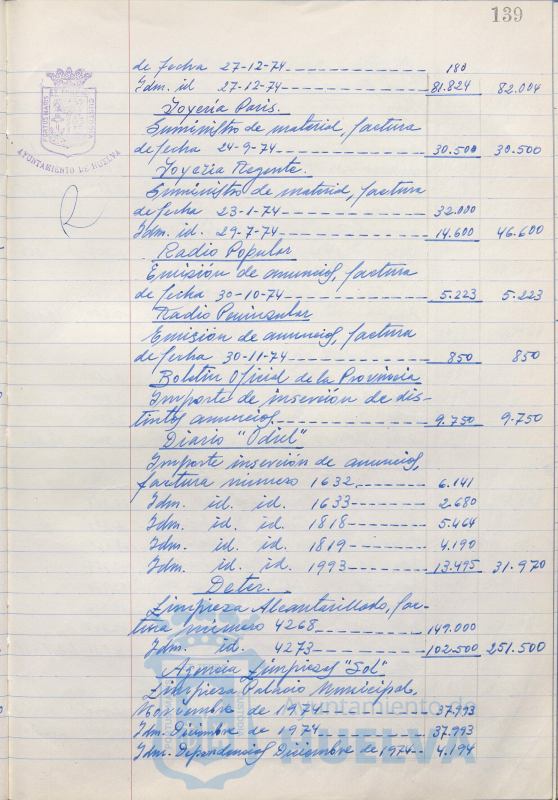 139
de fecha 27-12-74 180
Idm. id 27-12-74 81.824 82.004
Joyería Paris.
Suministro de material, factura
de fecha 24-9-74 30.500 30.500
Joyería Regente.
Suministros de material, factura
de fecha 23-1-74 32.000
Idm. id. 29-7-74 14.600 46.600
Radio Popular
Emisión de anuncios, factura
de fecha 30-10-74 5.223 5.223
Radio Peninsular
Emisión de anuncios, factura
de fecha 30-11-74 850 850
Boletín Oficial de la Provincia
Importe de inserción de dis-
tintos anuncios 9.750 9.750
Diario "Odiel"
Importe inserción de anuncios,
factura número 1632 6.141
Idm. id. id. 1633 2.680
Idm. id. id. 1818 5.464
Idm. id. id. 1819 4.190
Idm. id. id. 1993 13.495 31.970
Deter.
Limpieza Alcantarillado, fac-
tura número 4268 149.000
Idm. id. 4273 102.500 251.500
Agencia Limpiezas "Sol"
Limpieza Palacio Municipal,
Noviembre de 1974 37.993
Idm. Diciembre de 1974 37.993
Idm. Dependencias Diciembre de 1974 4.194
AYUNTAMIENTO DE HUELVA
Ayuntamiento de
HUELVA